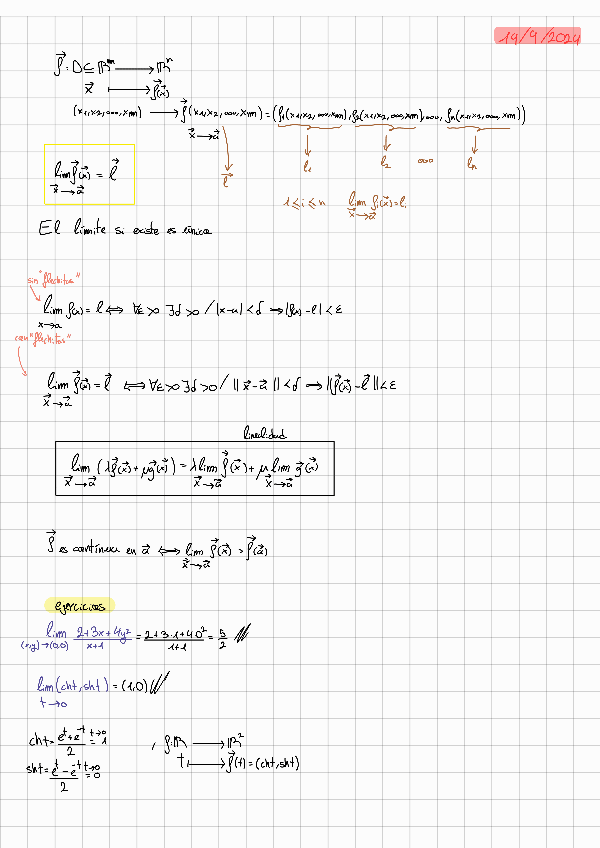 19/9/2024
f⃗ : D ⊆ ℝᵐ ⟶ ℝⁿ
x⃗ ⟼ f⃗(x⃗)
(x₁, x₂, ..., xm) ⟶ f⃗(x₁, x₂, ..., xm) = (f₁(x₁, x₂, ..., xm), f₂(x₁, x₂, ..., xm), ..., fn(x₁, x₂, ..., xm))
x⃗→a⃗
l⃗ l₁ l₂ ... ln
lim f⃗(x⃗) = l⃗
x⃗→a⃗
1 ≤ i ≤ n lim fᵢ(x⃗) = lᵢ
x⃗→a⃗
El límite si existe es único
sin "flechitas"
lim f(x) = l ⟺ ∀ε>0 ∃δ>0 / |x-a| < δ → |f(x) - l| < ε
x→a
con "flechitas"
lim f⃗(x⃗) = l⃗ ⟺ ∀ε>0 ∃δ>0 / ||x⃗ - a⃗|| < δ → ||f⃗(x⃗) - l⃗|| < ε
x⃗→a⃗
linealidad
lim (λf⃗(x⃗) + μg⃗(x⃗)) = λ lim f⃗(x⃗) + μ lim g⃗(x⃗)
x⃗→a⃗ x⃗→a⃗ x⃗→a⃗
f⃗ es continua en a⃗ ⟺ lim f⃗(x⃗) = f⃗(a⃗)
x⃗→a⃗
ejercicios
lim (2+3x+4y²)/(x+1) = (2+3·1+4·0²)/(1+1) = 5/2
(x,y)→(0,0)
lim (cht, sht) = (1,0)
t→0
cht = (eᵗ+e⁻ᵗ)/2 t→0 = 1 , f: ℝ ⟶ ℝ²
sht = (eᵗ-e⁻ᵗ)/2 t→0 = 0 t ⟼ f⃗(t) = (cht, sht)